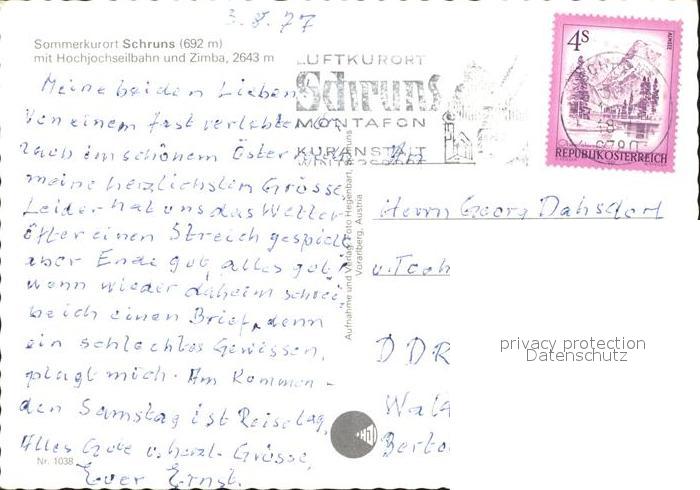 3. 8. 77
Sommerkurort Schruns (692 m)
mit Hochjochseilbahn und Zimba, 2643 m
LUFTKURORT
Schruns
MONTAFON
KURANSTALT
4S
REPUBLIK ÖSTERREICH
Meine beiden Lieben
Von einem fast verlebten
im schönem Öster
meine herzlichsten Grüsse
Leider hat uns das Wetter
öfter einen Streich gespielt
aber Ende gut, alles gut!
wenn wieder daheim schrei
be ich einen Brief, denn
ein schlechtes Gewissen,
plagt mich. Am Kommen-
den Samstag ist Reisetag,
Alles Gute u. herzl. Grüsse,
Euer Ernst.
Nr. 1038
Aufnahme und Verlag: Foto Hegenbart, Schruns
Vorarlberg, Austria
An
Herrn Georg Dahsdorf
u. Toch
DDR
Wal
Berto
privacy protection
Datenschutz